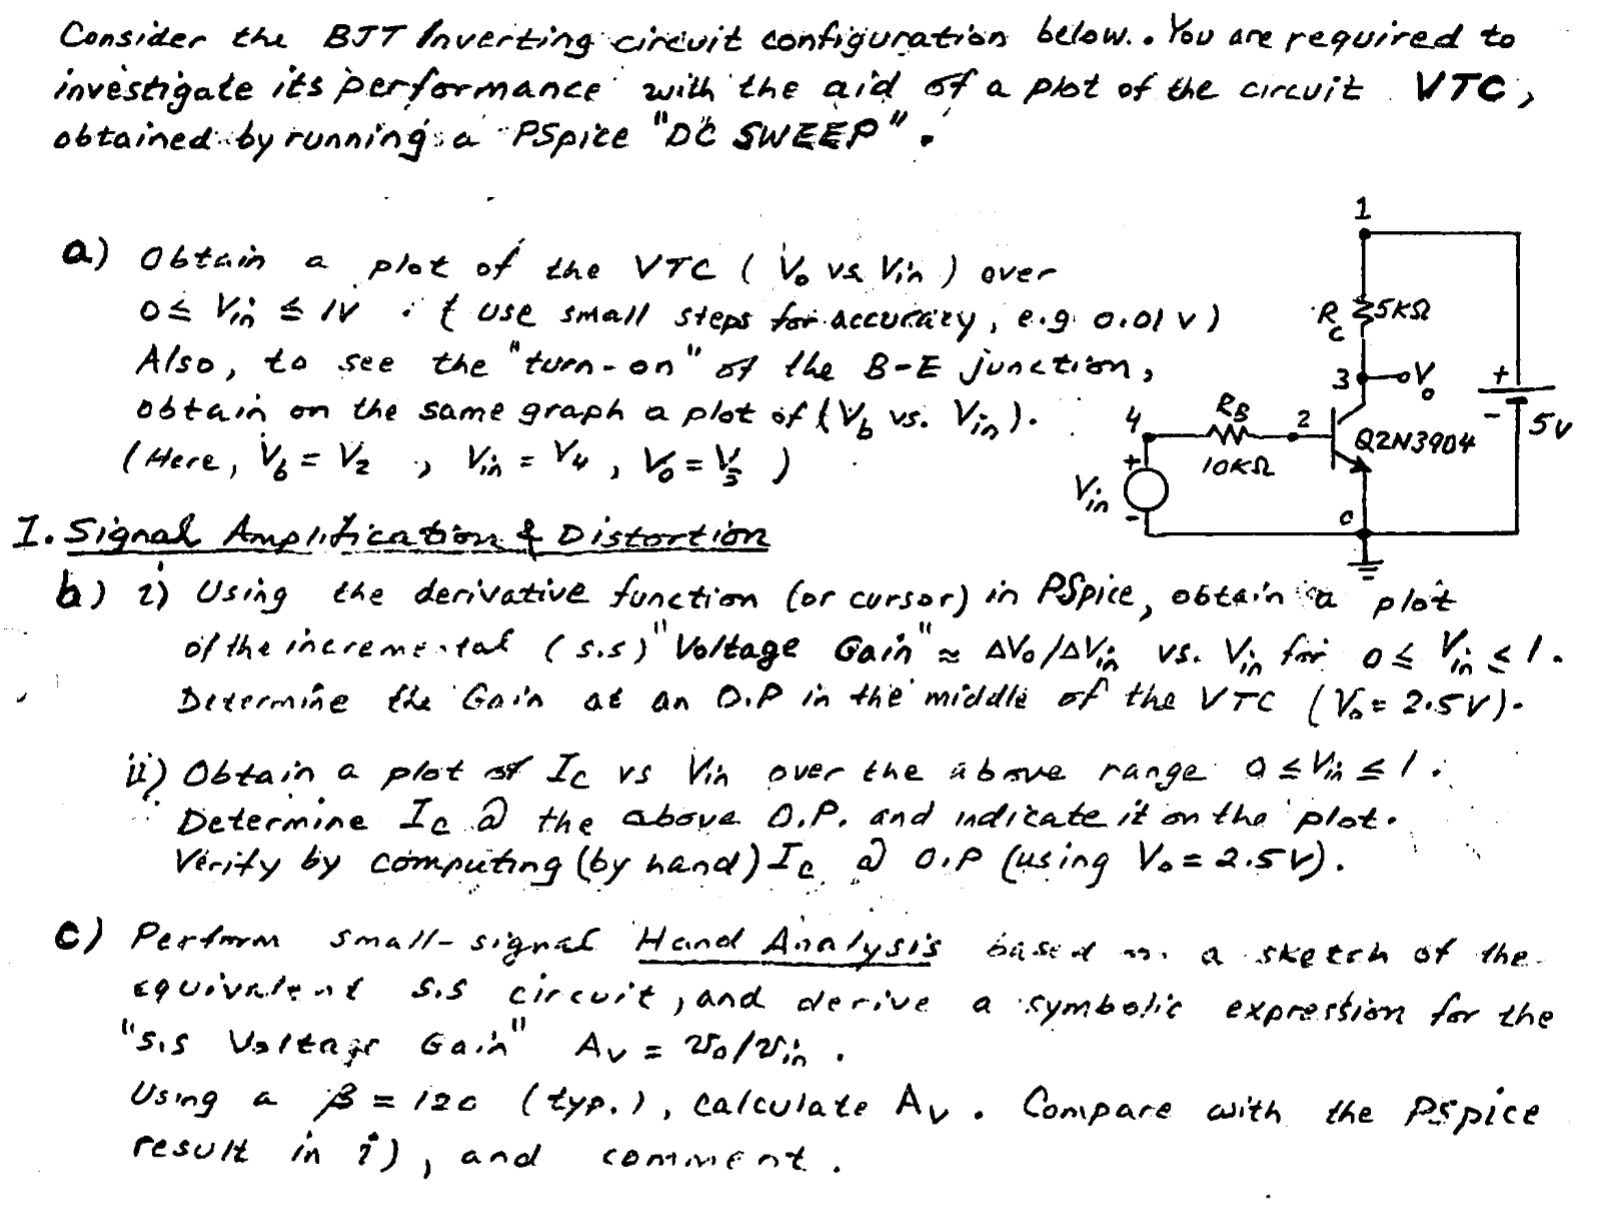 Consider the BJT Inverting circuit configuration below.. You are required to
investigate its performance with the aid of a plot of the circuit VTC,
obtained by running a PSpice "DC SWEEP".
a) Obtain a plot of the VTC ( Vo vs Vin ) over
0 ≤ Vin ≤ 1V . ( use small steps for accuracy, e.g. 0.01 V )
Also, to see the "turn-on" of the B-E junction,
obtain on the same graph a plot of ( Vb vs. Vin ).
( Here, Vb = V2 , Vin = V4 , Vo = V3 )
1
Rc 5KΩ
3 Vo
+
- 5V
4 RB 2
10KΩ
Q2N3904
+
Vin
-
0
I. Signal Amplification & Distortion
b) i) Using the derivative function (or cursor) in PSpice, obtain a plot
of the incremental (s.s) "Voltage Gain" ≈ ΔVo/ΔVin vs. Vin for 0 ≤ Vin ≤ 1.
Determine the Gain at an O.P in the middle of the VTC ( Vo = 2.5V ).
ii) Obtain a plot of Ic vs Vin over the above range 0 ≤ Vin ≤ 1.
Determine Ic @ the above O.P. and indicate it on the plot.
Verify by computing (by hand) Ic @ O.P (using Vo = 2.5V).
c) Perform small-signal Hand Analysis based on a sketch of the
equivalent s.s circuit, and derive a symbolic expression for the
"s.s Voltage Gain" Av = vo/vin .
Using a β = 120 (typ.), calculate Av . Compare with the PSpice
result in i), and comment.